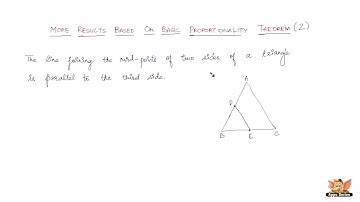 MORE RESULTS BASED ON BASIC PROPORTIONALITY THEOREM (2)
The line joining the mid-points of two sides of a triangle
is parallel to the third side.
A
D
B E C